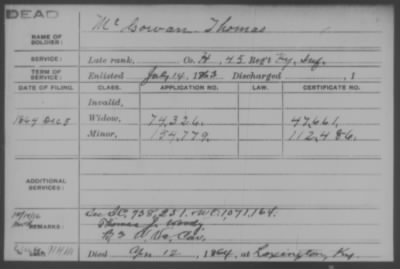 DEAD
Mc Gowan Thomas
NAME OF SOLDIER:
SERVICE: Late rank, Co. H, 45 Reg't Ky. Inf.
TERM OF SERVICE: Enlisted July 14, 1863 Discharged , 1
DATE OF FILING. CLASS. APPLICATION NO. LAW. CERTIFICATE NO.
Invalid,
1864 Dec 8 Widow, 74,326. 47,661.
Minor, 154,779. 112,486.
ADDITIONAL SERVICES:
REMARKS: See SC. 738,231. & WC. 1,071,164.
Thomas J.
Cav.
Died 12, 1864, at Lexington Ky.